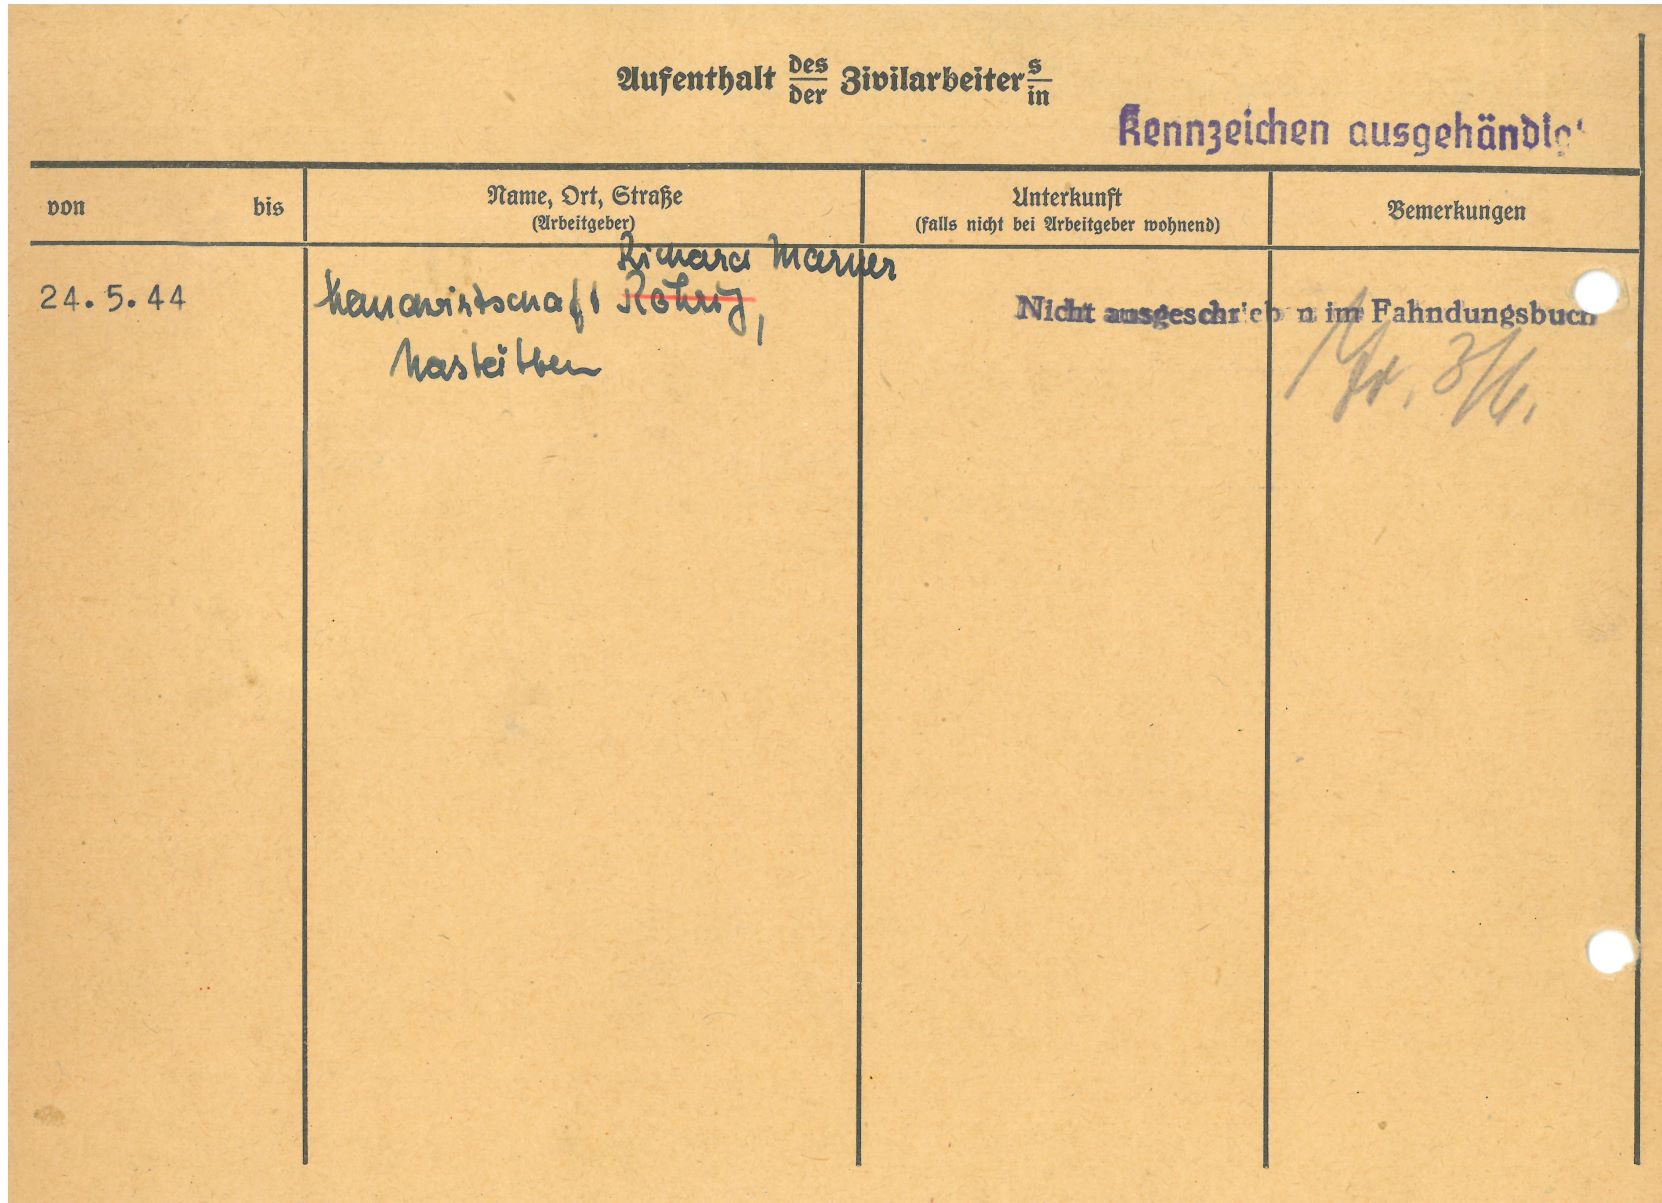 Aufenthalt des/der Zivilarbeiters/in
Kennzeichen ausgehändig
von bis
Name, Ort, Straße
(Arbeitgeber)
Unterkunft
(falls nicht bei Arbeitgeber wohnend)
Bemerkungen
Richard Marner
24.5.44
Röhrig,
Nicht ausgeschrieben im Fahndungsbuch
Nastätten